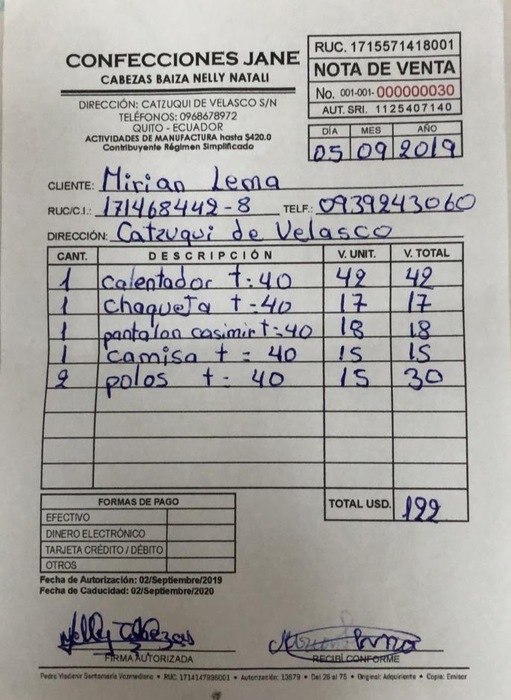 CONFECCIONES JANE
CABEZAS BAIZA NELLY NATALI
DIRECCIÓN: CATZUQUI DE VELASCO S/N
TELÉFONOS: 0968678972
QUITO - ECUADOR
ACTIVIDADES DE MANUFACTURA hasta $420.0
Contribuyente Régimen Simplificado
RUC. 1715571418001
NOTA DE VENTA
No. 001-001- 000000030
AUT. SRI. 1125407140
DÍA MES AÑO
05 09 2019
CLIENTE: Mirian Lema
RUC/C.I.: 171468442-8 TELF.: 0939243060
DIRECCIÓN: Catzuqui de Velasco
CANT. DESCRIPCIÓN V. UNIT. V. TOTAL
1 calentador t:40 42 42
1 chaqueta t-40 17 17
1 pantalon casimir t:40 18 18
1 camisa t = 40 15 15
2 polos t: 40 15 30
FORMAS DE PAGO
EFECTIVO
DINERO ELECTRÓNICO
TARJETA CRÉDITO / DÉBITO
OTROS
TOTAL USD. 122
Fecha de Autorización: 02/Septiembre/2019
Fecha de Caducidad: 02/Septiembre/2020
Nelly Cabezas
FIRMA AUTORIZADA
RECIBÍ CONFORME
Pedro Vladimir Santamaría • RUC: 1714147998001 • Autorización: 13079 • Del 26 al 75 • Original: Adquiriente • Copia: Emisor